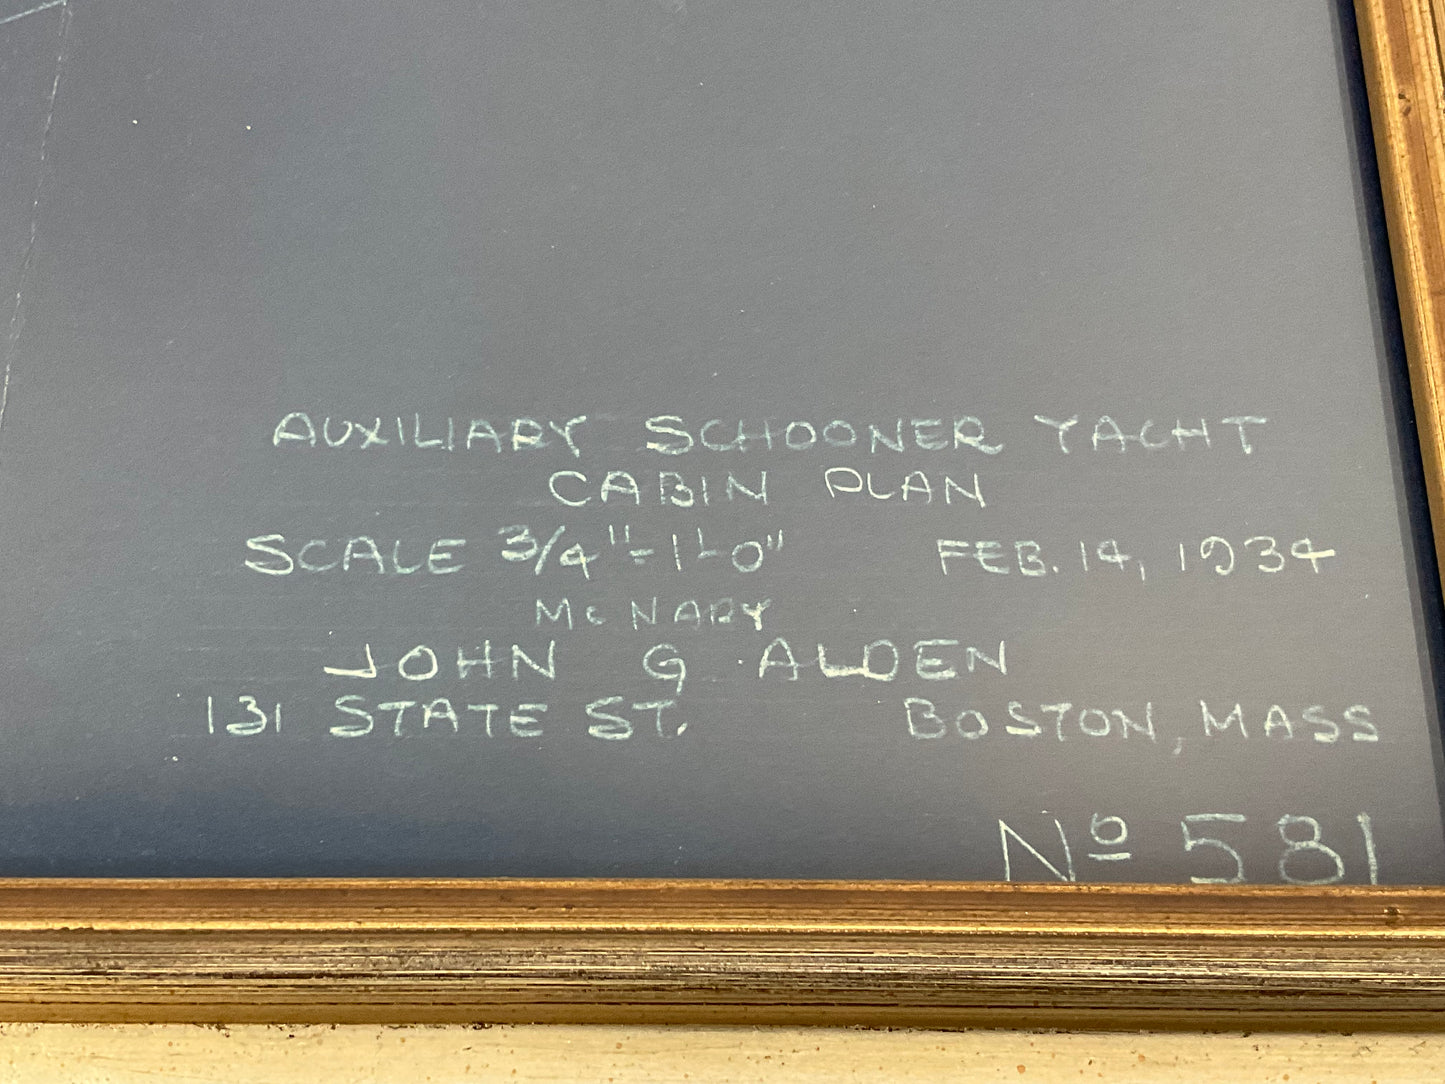 AUXILIARY SCHOONER YACHT
CABIN PLAN
SCALE 3/4"=1'-0" FEB. 14, 1934
McNARY
JOHN G. ALDEN
131 STATE ST. BOSTON, MASS
Nº 581